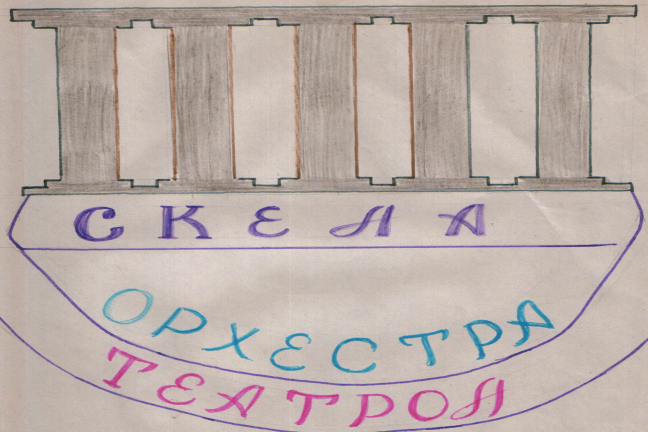 СКЕНА
ОРХЕСТРА
ТЕАТРОН